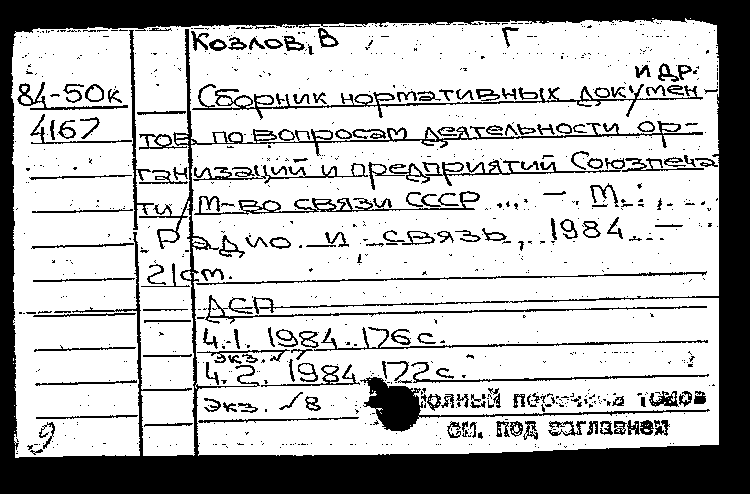 Козлов, В Г
и др.
84-50к Сборник нормативных докумен-
4167 тов по вопросам деятельности ор-
ганизаций и предприятий Союзпеча
ти / М-во связи СССР ... - М.:
Радио и связь, 1984. -
21 см.
ДСП
Ч.1. 1984. 176 с.
экз. №
Ч.2. 1984 172 с.
экз. №8
Полный перечень томов
см. под заглавием
9